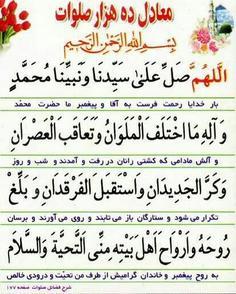 معادل ده هزار صلوات
بِسْمِ اللهِ الرَّحْمنِ الرَّحيمِ
اَللّهُمَّ صَلِّ عَلىٰ سَيِّدِنَا وَنَبِيِّنَا مُحَمَّدٍ
بار خدایا رحمت فرست به آقا و پیغمبر ما حضرت محمّد
وَ آلِهِ مَا اخْتَلَفَ الْمَلَوَانُ وَتَعَاقَبَ الْعَصْرَانِ
و آلش مادامی که کشتی رانان در رفت و آمدند و شب و روز
وَكَرَّ الْجَدِيدَانِ وَاسْتَقْبَلَ الْفَرْقَدَانِ وَ بَلِّغْ
تکرار می شود و ستارگان باز می تابند و روی می آورند و برسان
رُوحَهُ وَاَرْوَاحَ اَهْلِ بَيْتِهِ مِنِّى التَّحِيَّةَ وَالسَّلَامَ
به روح پیغمبر و خاندان گرامیش از طرف من تحیّت و درودی خالص
شرح فضائل صلوات صفحه ۱۷۷